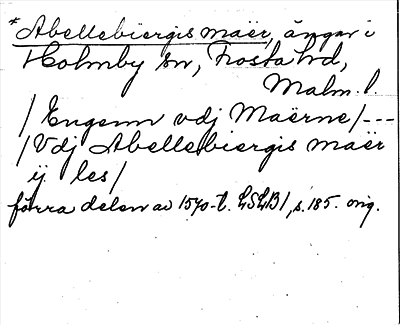 *Abellebiergis maër, ängar i
Holmby sn, Frosta hd,
Malm. l.
/ Engenn vdj Maërne/---
/ Vdj Abellebiergis maër
ij les/
förra delen av 1570-t. LSLB1, s. 185. orig.